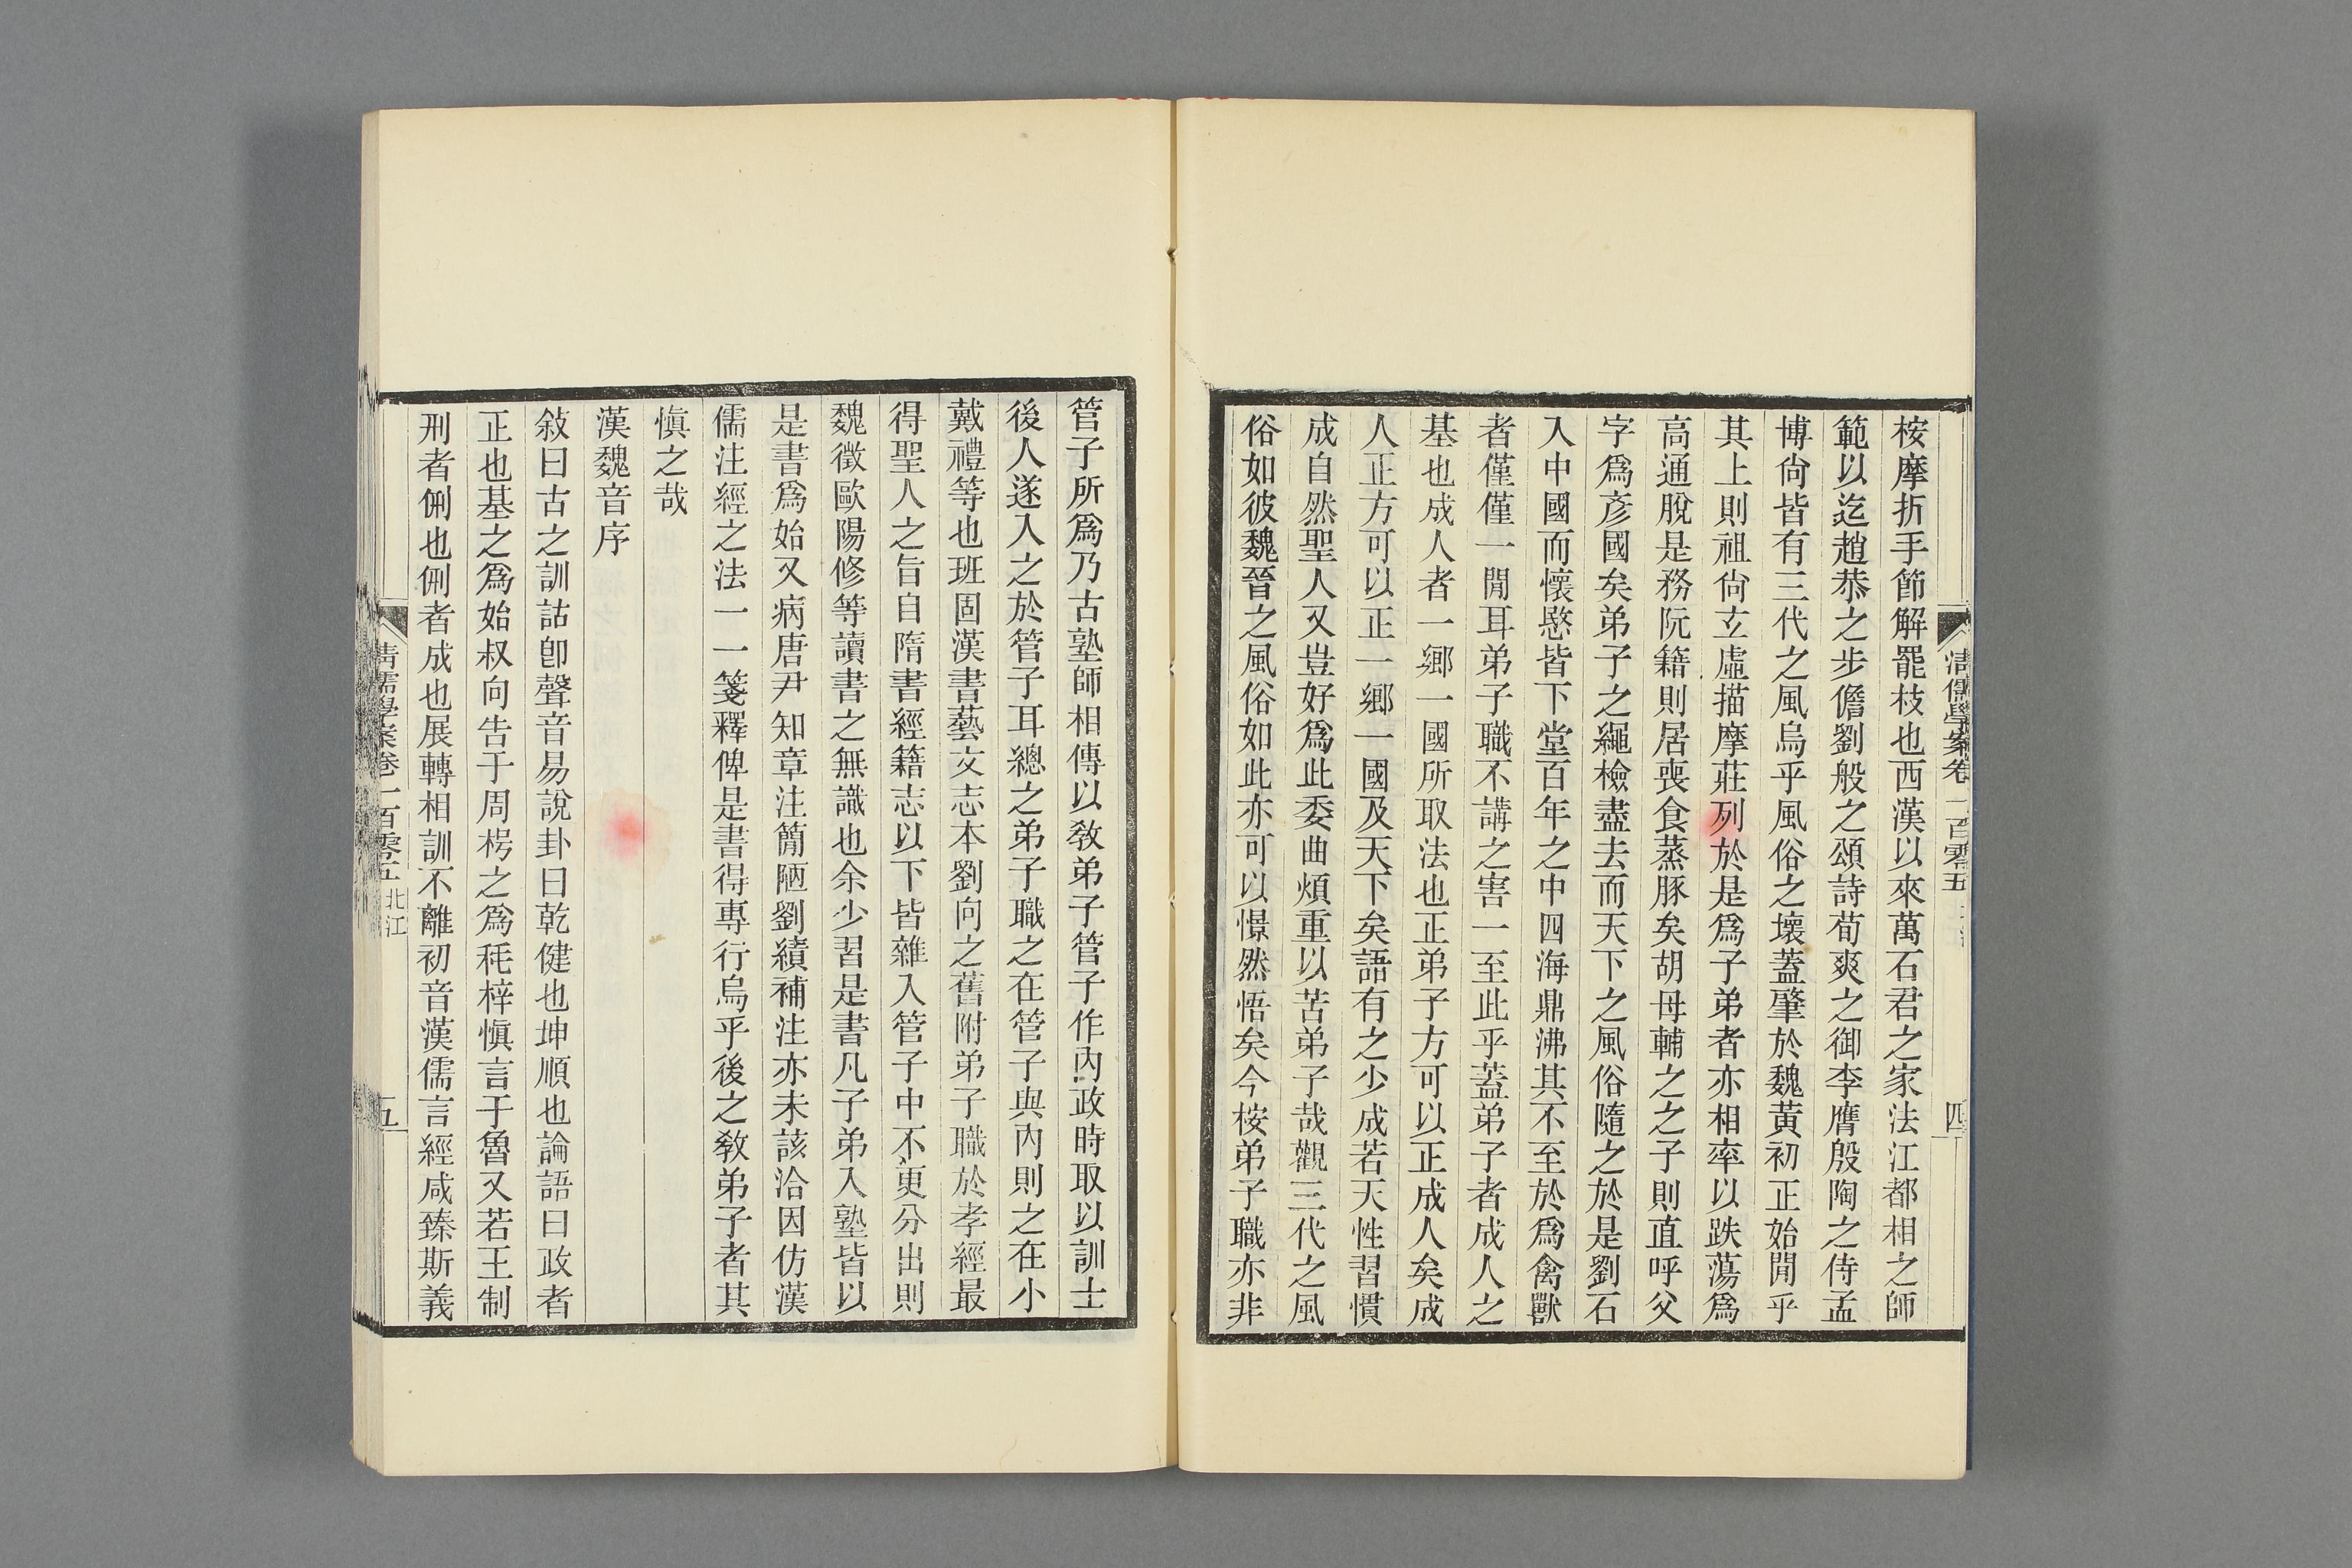 清儒學案卷一百零五
四
桉摩折手節解罷枝也西漢以來萬石君之家法江都相之師
範以迄趙恭之步儋劉般之頌詩荀爽之御李膺殷陶之侍孟
博尙皆有三代之風烏乎風俗之壞蓋肇於魏黃初正始閒乎
其上則祖尙玄虛描摩莊列於是爲子弟者亦相率以跌蕩爲
高通脫是務阮籍則居喪食蒸豚矣胡母輔之之子則直呼父
字爲彥國矣弟子之繩檢盡去而天下之風俗隨之於是劉石
入中國而懷愍皆下堂百年之中四海鼎沸其不至於爲禽獸
者僅僅一閒耳弟子職不講之害一至此乎蓋弟子者成人之
基也成人者一鄉一國所取法也正弟子方可以正成人矣成
人正方可以正一鄉一國及天下矣語有之少成若天性習慣
成自然聖人又豈好爲此委曲煩重以苦弟子哉觀三代之風
俗如彼魏晉之風俗如此亦可以憬然悟矣今桉弟子職亦非
管子所爲乃古塾師相傳以敎弟子管子作內政時取以訓士
後人遂入之於管子耳總之弟子職之在管子與內則之在小
戴禮等也班固漢書藝文志本劉向之舊附弟子職於孝經最
得聖人之旨自隋書經籍志以下皆雜入管子中不更分出則
魏徵歐陽修等讀書之無識也余少習是書凡子弟入塾皆以
是書爲始又病唐尹知章注簡陋劉績補注亦未該洽因仿漢
儒注經之法一一箋釋俾是書得專行烏乎後之敎弟子者其
愼之哉
漢魏音序
敍曰古之訓詁卽聲音易說卦曰乾健也坤順也論語曰政者
正也基之爲始叔向告于周栲之爲秏梓愼言于魯又若王制
刑者侀也侀者成也展轉相訓不離初音漢儒言經咸臻斯義
清儒學案卷一百零五 北江
五